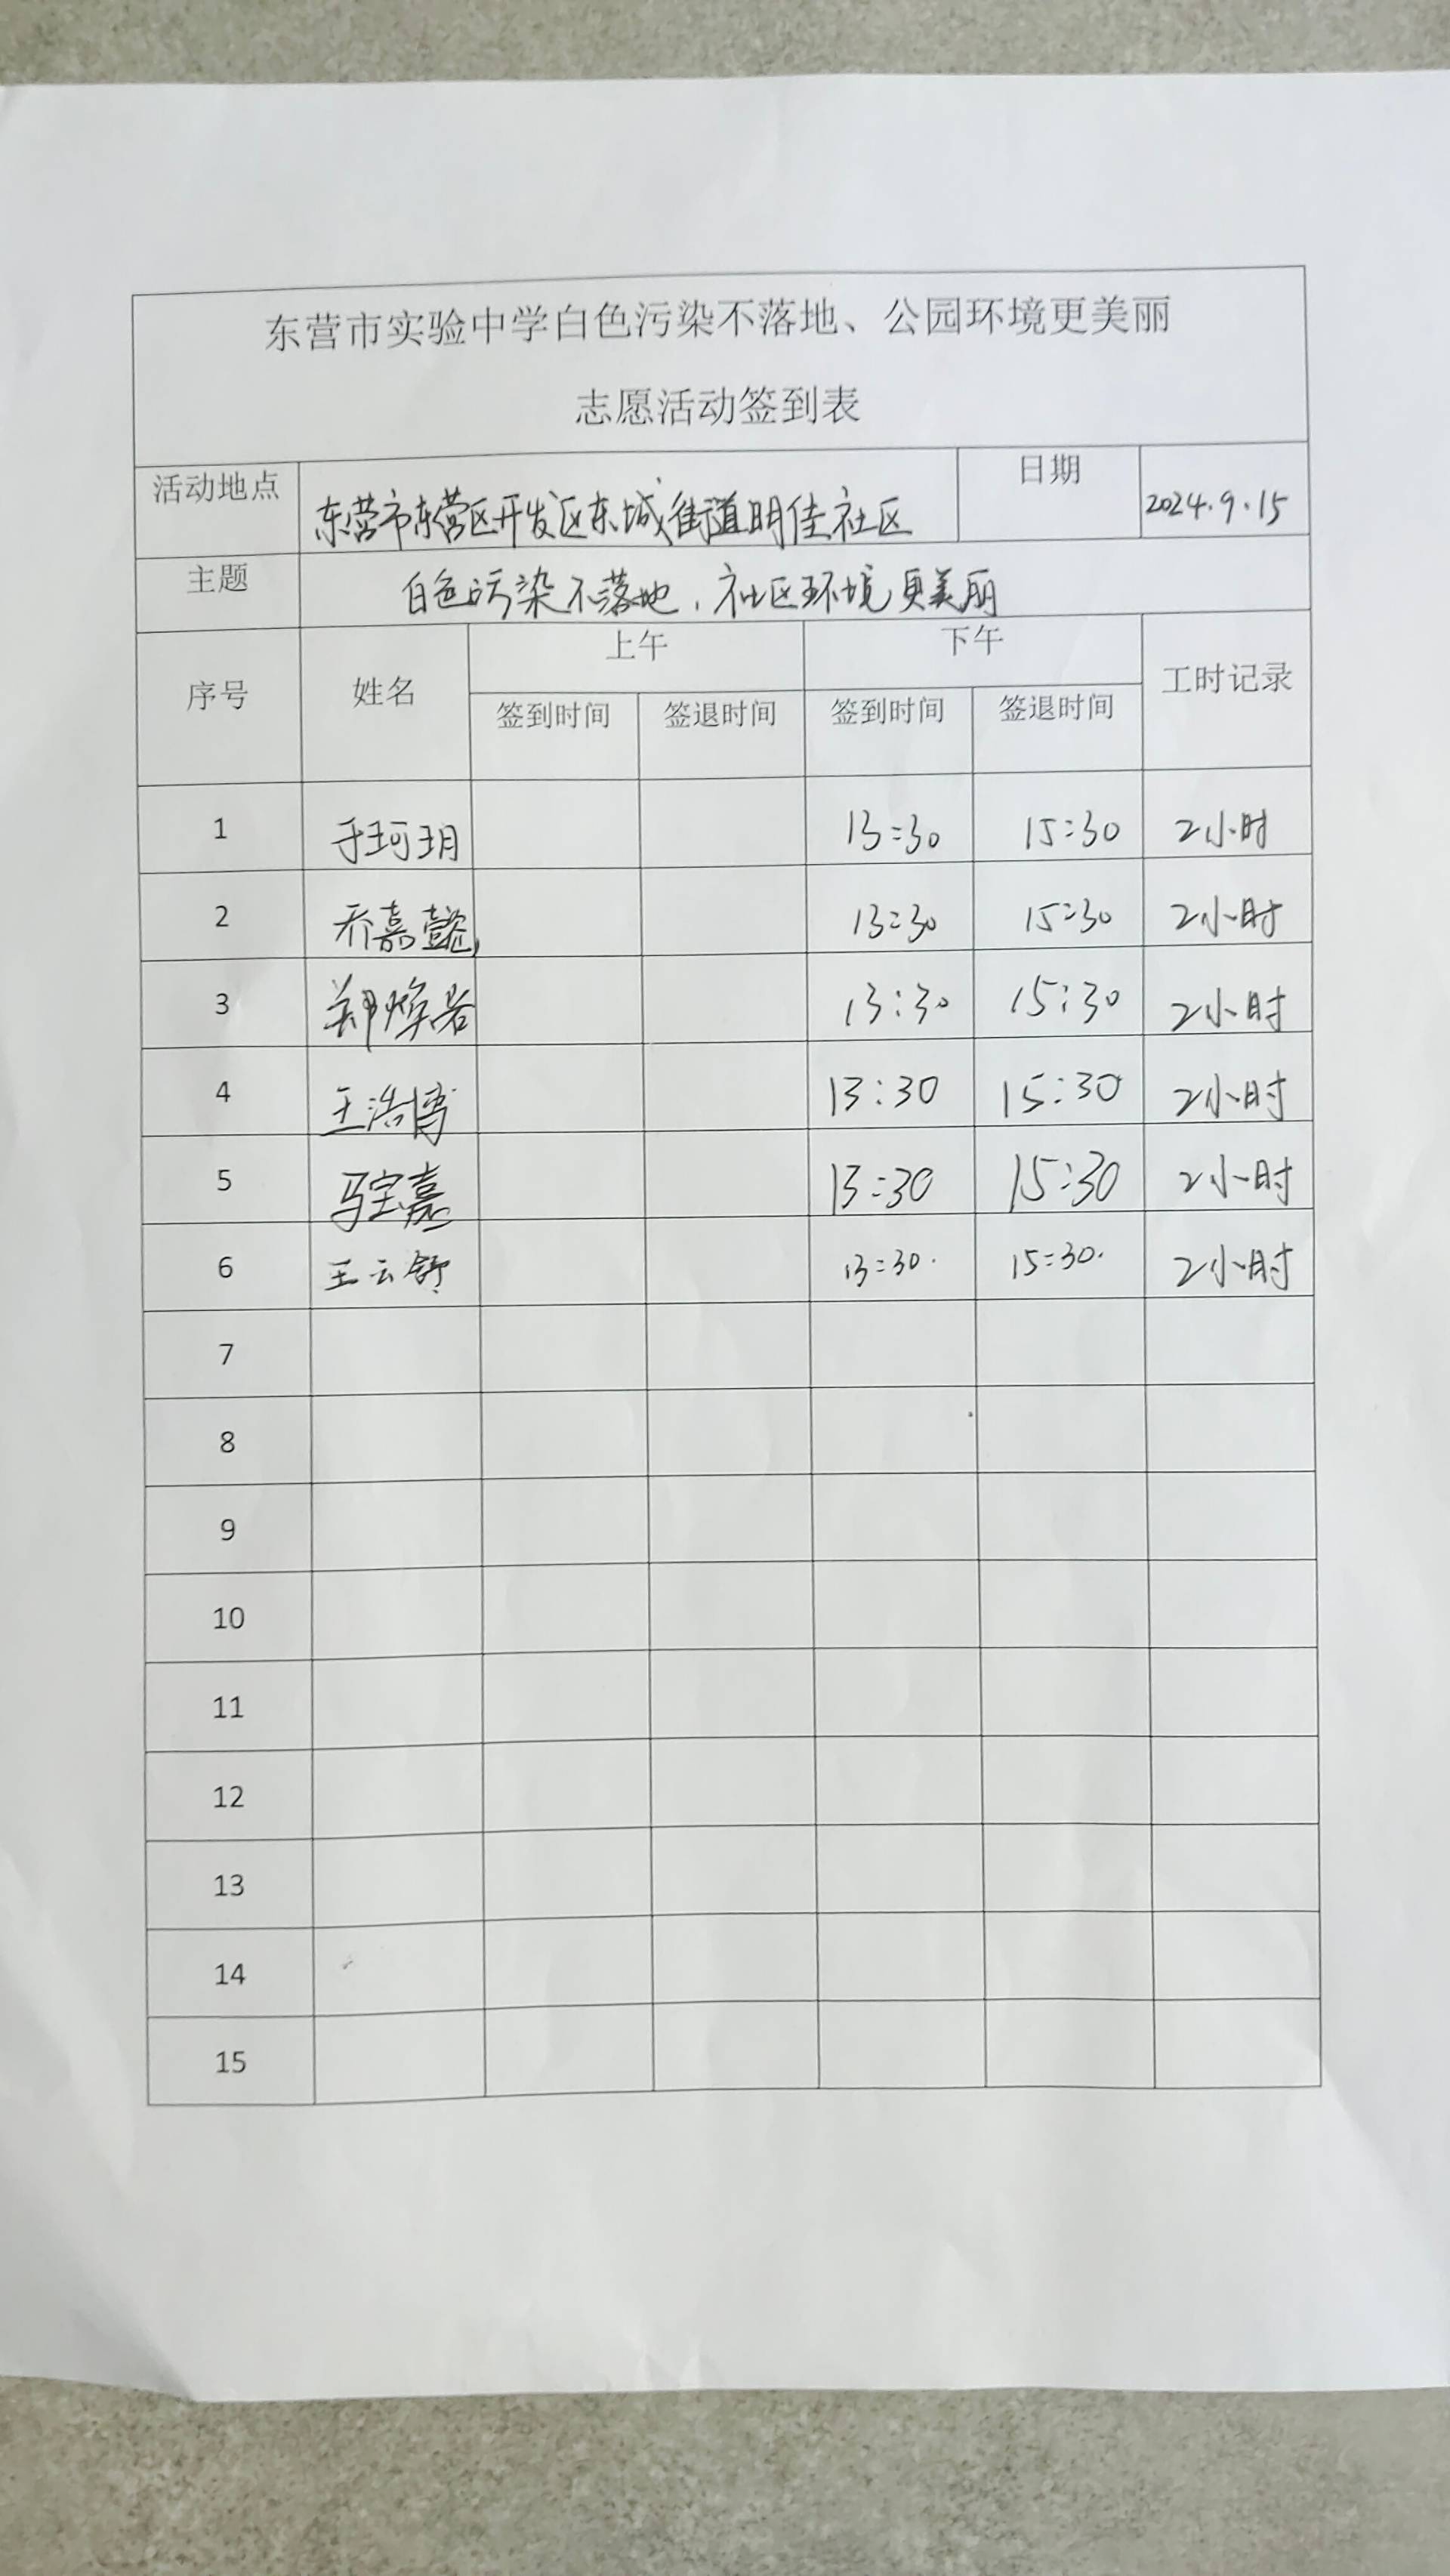 东营市实验中学白色污染不落地、公园环境更美丽
志愿活动签到表
活动地点 东营市东营区开发区东城街道明佳社区 日期 2024.9.15
主题 白色污染不落地，社区环境更美丽
序号 姓名 上午 下午 工时记录
签到时间 签退时间 签到时间 签退时间
1 于珂玥 13:30 15:30 2小时
2 乔嘉懿 13:30 15:30 2小时
3 郑焕岩 13:30 15:30 2小时
4 王浩博 13:30 15:30 2小时
5 马宝嘉 13:30 15:30 2小时
6 王云舒 13:30. 15:30. 2小时
7
8
9
10
11
12
13
14
15